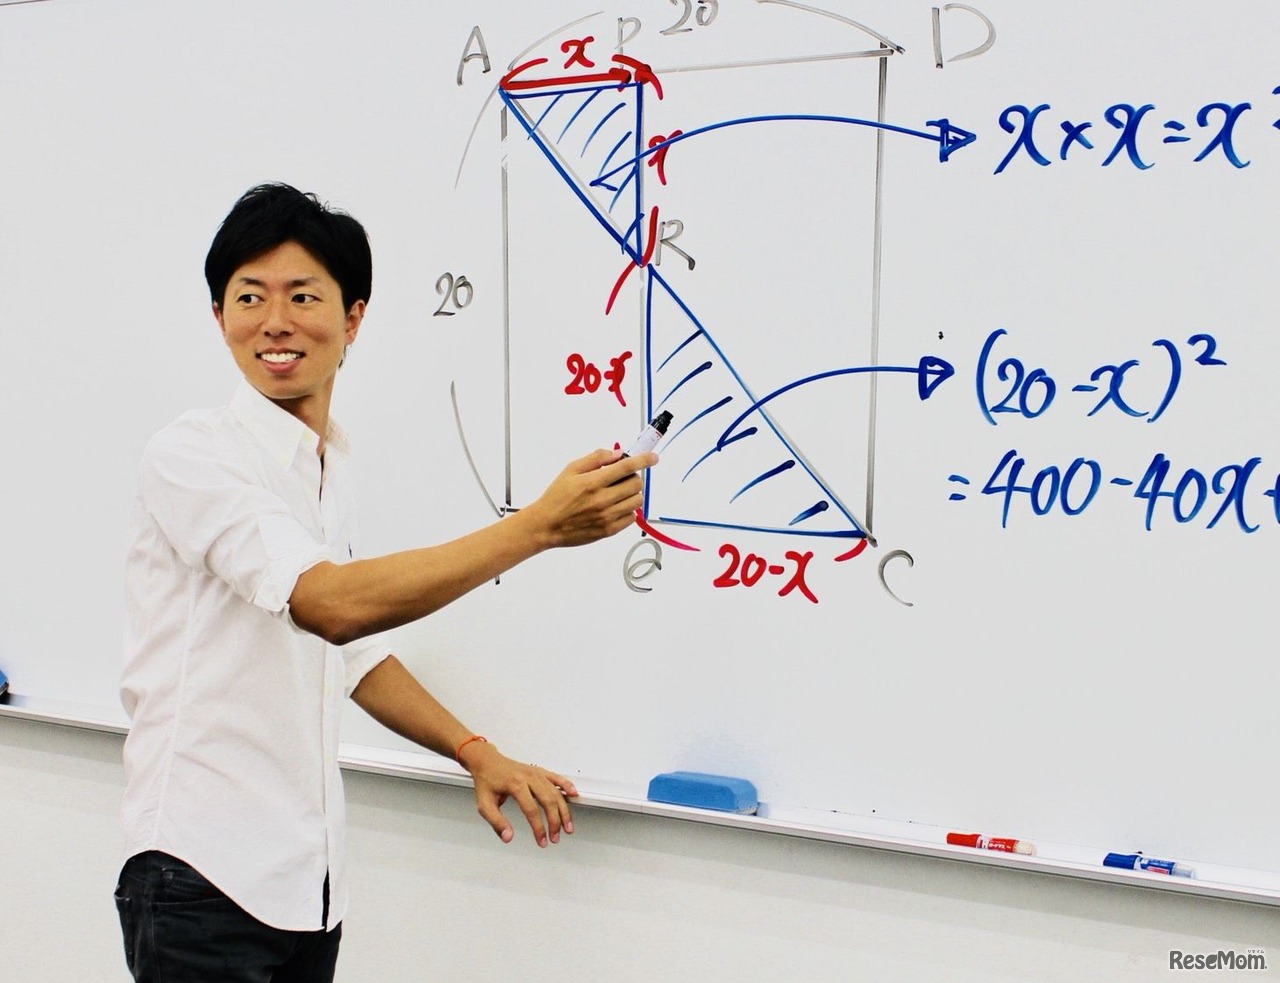 A
P
20
D
x
x
x × x = x
R
20
20-x
(20-x)²
=400-40x+
Q
20-x
C
ReseMom